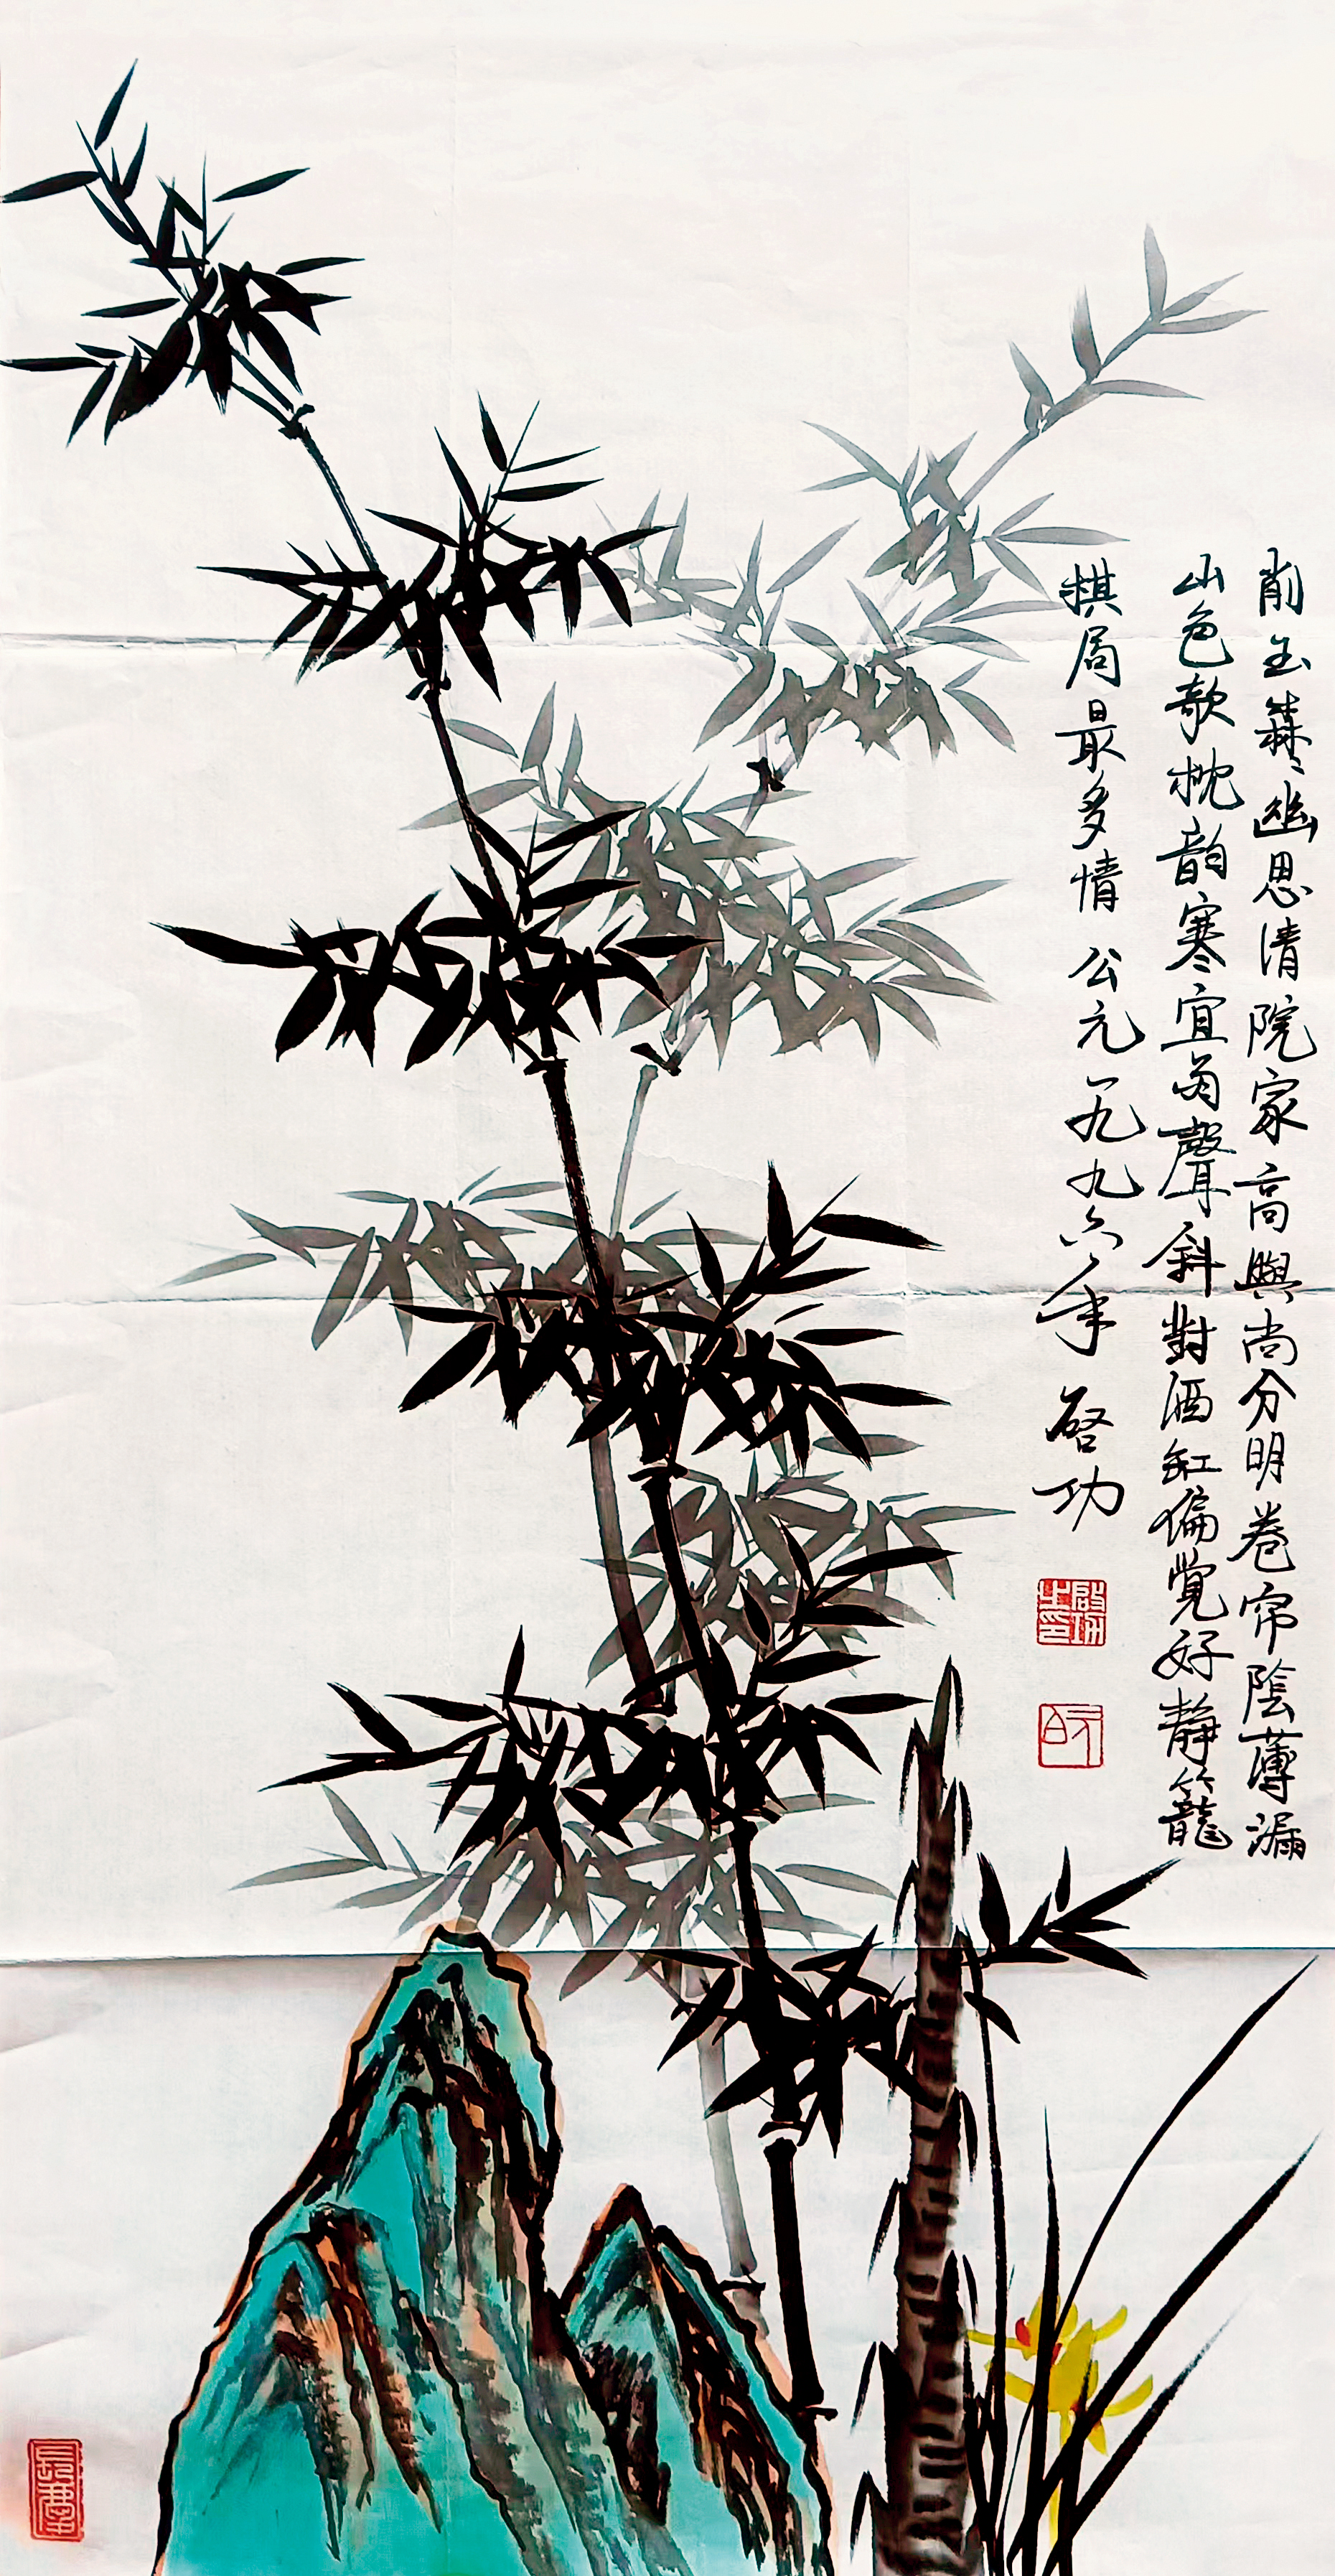 削玉森々幽思清院家高興尚分明卷帘陰薄漏
山色欹枕韵寒宜雨聲斜對酒缸偏覺好静籠
棋局最多情 公元一九九六年 啓功
啟功之印
元白